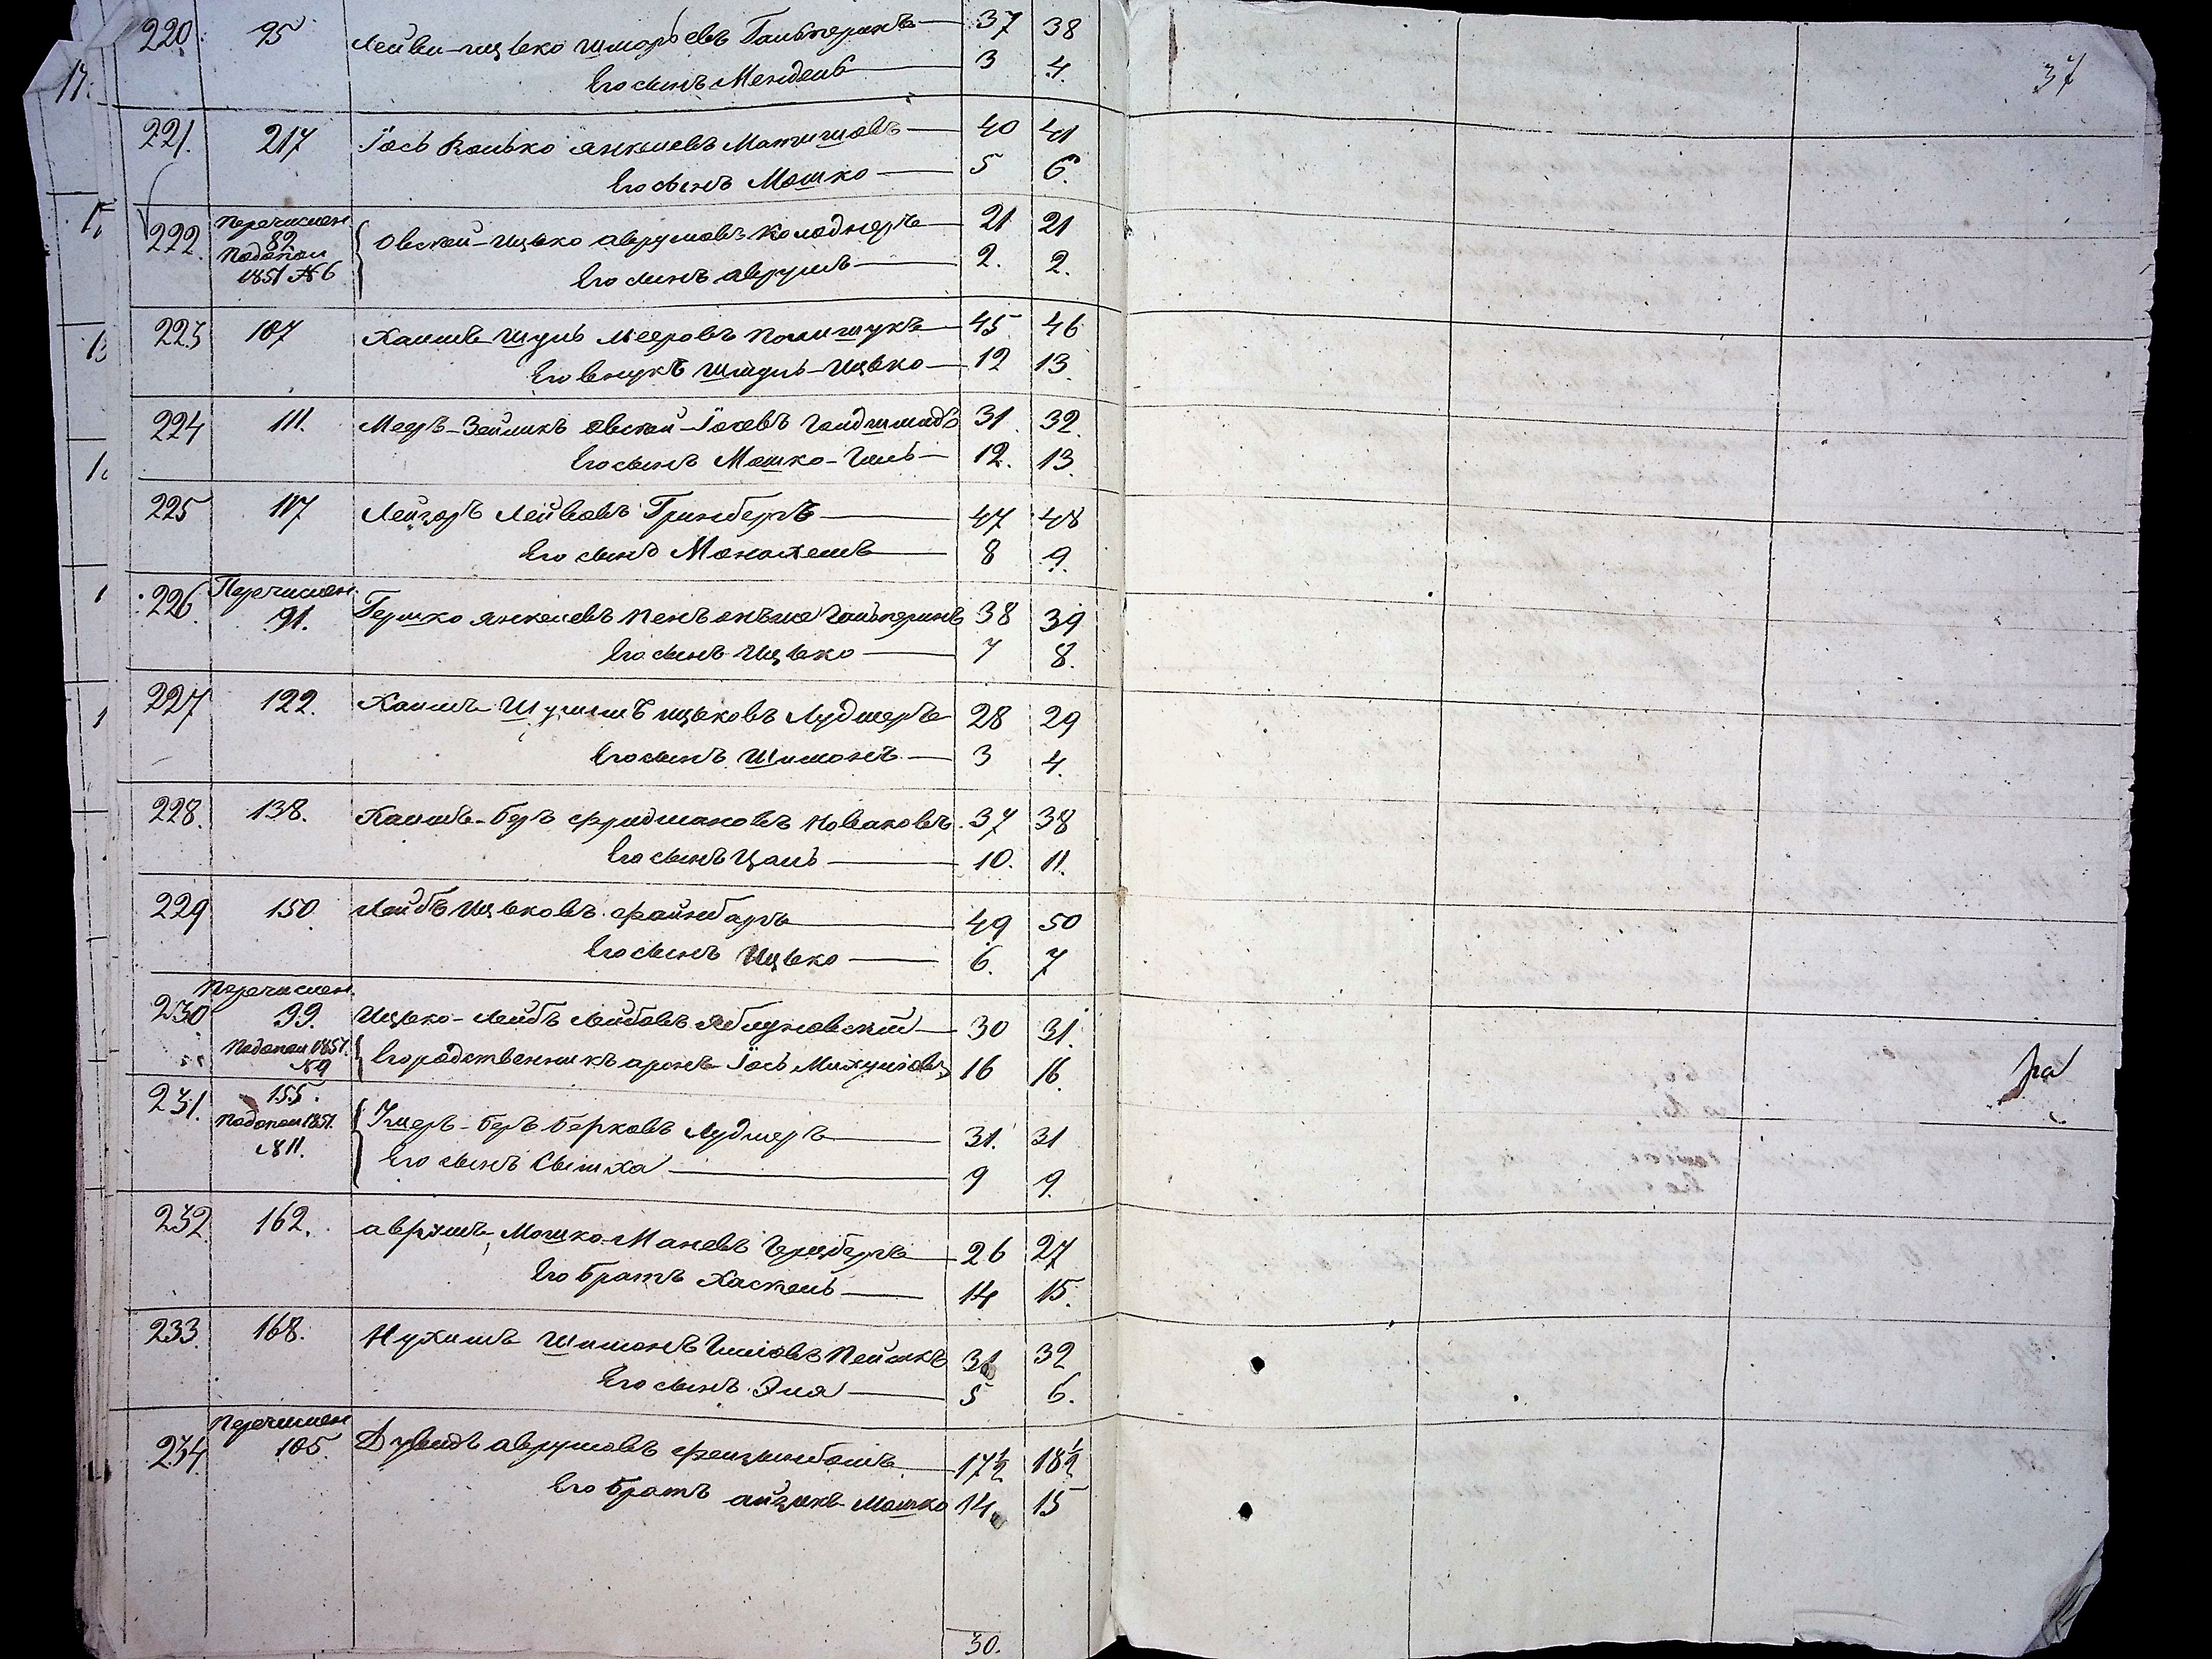 220. 95 Лейви-Ицько Шморьевъ Гальперинъ 37 38
Его сынъ Мендель 3 4.
17.
221. 217 Іось Волько Янкелевъ Матишовъ 40 41
Его сынъ Мошко 5 6.
222. Перечислен 82 Подопол 1851 №6 Овсей-Ицько Аврумовъ Колоднеръ 21 21
Его сынъ Аврумъ 2. 2.
223 107 Хаимъ Шуль Мееровъ Полищукъ 45 46
Его внукъ Шмуль-Ицько 12 13.
224 111. Мееръ-Зейликъ Овсей-Іосевъ Гольдшмидъ 31. 32.
Его сынъ Мошко-Гиль 12. 13.
225 117 Лейзоръ Лейбовъ Гринбергъ 47 48
Его сынъ Монахемъ 8 9.
226. Перечислен. 91. Гершко Янкелевъ Гальперинъ 38 39
Его сынъ Ицько 7 8.
227 122. Хаимъ Шулимъ Ицьковъ Лудмеръ 28 29
Его сынъ Шимонъ 3 4.
228. 138. Хаимъ-Беръ Фридмановъ Новаковъ 37 38
Его сынъ Цаль 10. 11.
229 150 Лейбъ Ицьковъ Файнбаръ 49 50
Его сынъ Ицько 6. 7
Перечислен.
230 99. Ицько-Лейбъ Лейбовъ Яблуновскій 30 31.
Подопол 1851. №9 Его родственникъ Аронъ Іось Михуловъ 16 16.
231. 155. Подопол 1851. №11. Ушеръ-Беръ Берковъ Лудмеръ 31. 31
Его сынъ Симха 9 9.
232 162. Аврумъ Мошко-Маневъ Герцбергъ 26 27
Его братъ Хаскель 14 15.
233. 168. Нухимъ Шимонъ Гиловъ Пейсикъ 31 32
Его сынъ Эля 5 6.
Перечислен
234. 105. Дувидъ Аврумовъ 17½ 18½
Его братъ Айзикъ Мошко 14. 15
30.
37